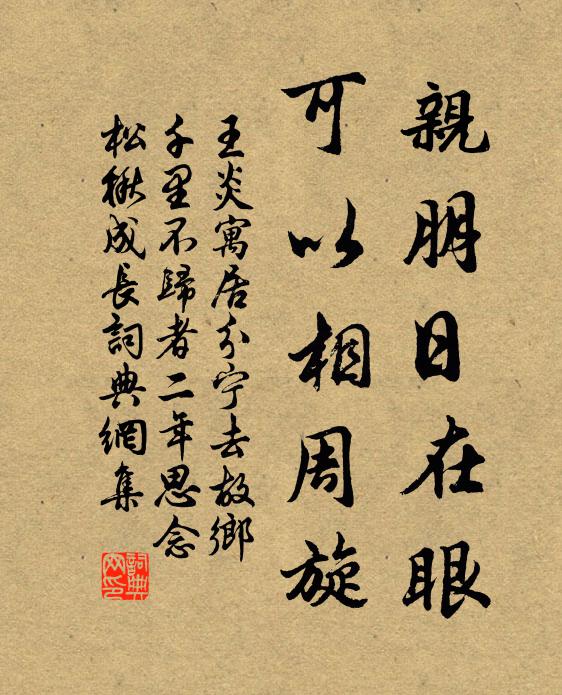 親朋日在眼
可以相周旋
王炎寓居分宁去故鄉
千里不歸者二年思念
松楸成長詞典網集
詞典
网印